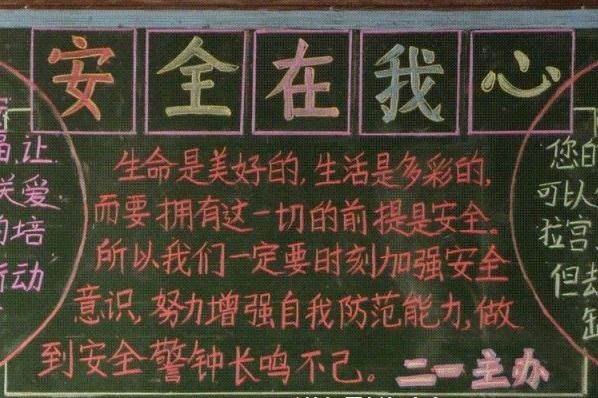 安全在我心
生命是美好的,生活是多彩的,
而要拥有这一切的前提是安全。
所以我们一定要时刻加强安全
意识,努力增强自我防范能力,做
到安全警钟长鸣不己。
二一主办
福,让
关爱
的培
动
您的
可以
拉宫,
但却